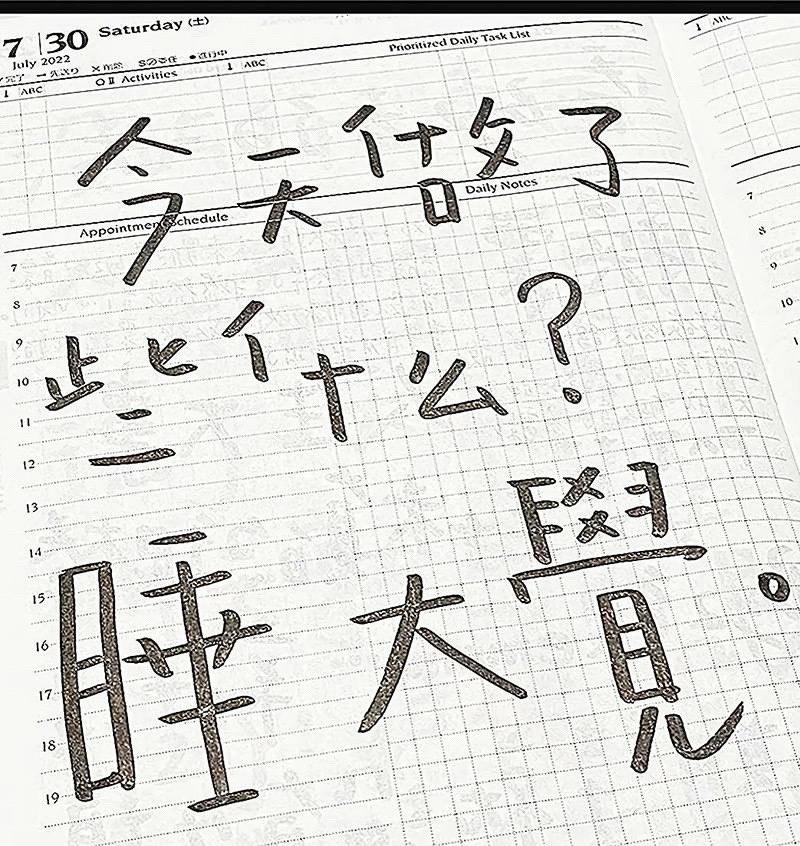 7 30 Saturday (土)
July 2022
完了 →先送り ×削除 委任 ●進行中
Prioritized Daily Task List
↓ ABC Activities ↓ ABC
↓ ABC
今天做了
Appointment Schedule
Daily Notes
些什么?
睡大覺。
7
8
9
10
11
12
13
14
15
16
17
18
19
7
8
9
10
1